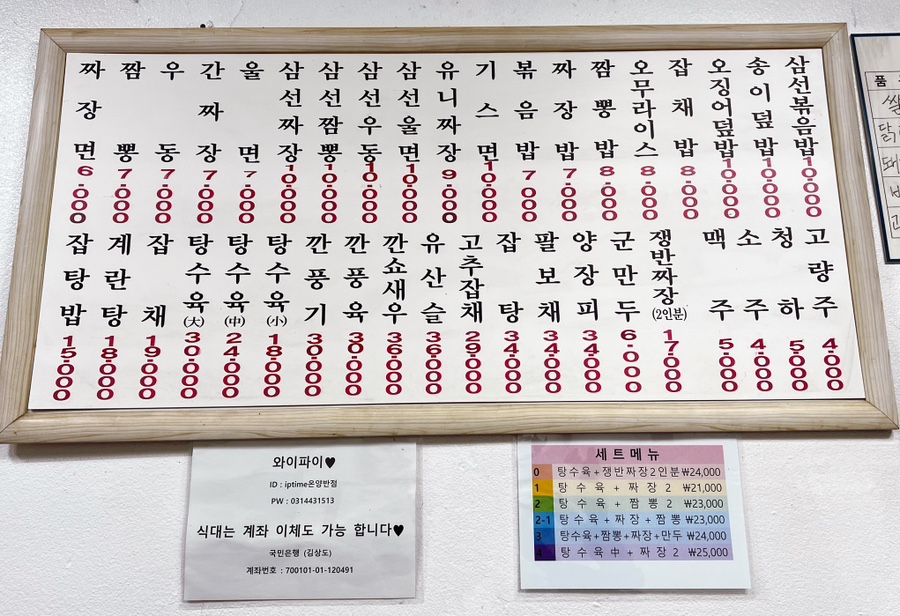 짜장면 6.000
짬뽕 7.000
우동 7.000
간짜장 7.000
울면 7.000
삼선짜장 10.000
삼선짬뽕 10.000
삼선우동 10.000
삼선울면 10.000
유니짜장 9.000
기스면 10.000
볶음밥 7.000
짜장밥 7.000
짬뽕밥 8.000
오무라이스 8.000
잡채밥 8.000
오징어덮밥 10.000
송이덮밥 10.000
삼선볶음밥 10.000
잡탕밥 15.000
계란탕 18.000
잡채 19.000
탕수육(大) 30.000
탕수육(中) 24.000
탕수육(小) 18.000
깐풍기 30.000
깐풍육 30.000
깐쇼새우 36.000
유산슬 36.000
고추잡채 29.000
잡탕 34.000
팔보채 34.000
양장피 34.000
군만두 6.000
쟁반짜장(2인분) 17.000
맥주 5.000
소주 4.000
청하 5.000
고량주 4.000
와이파이♥
ID : iptime온양반점
PW : 0314431513
식대는 계좌 이체도 가능 합니다♥
국민은행 (김상도)
계좌번호 : 700101-01-120491
세트메뉴
0 탕수육+쟁반짜장2인분 ₩24,000
1 탕수육+짜장2 ₩21,000
2 탕수육+짬뽕2 ₩23,000
2-1 탕수육+짜장+짬뽕 ₩23,000
3 탕수육+짬뽕+짜장+만두 ₩24,000
4 탕수육中+짜장2 ₩25,000
품